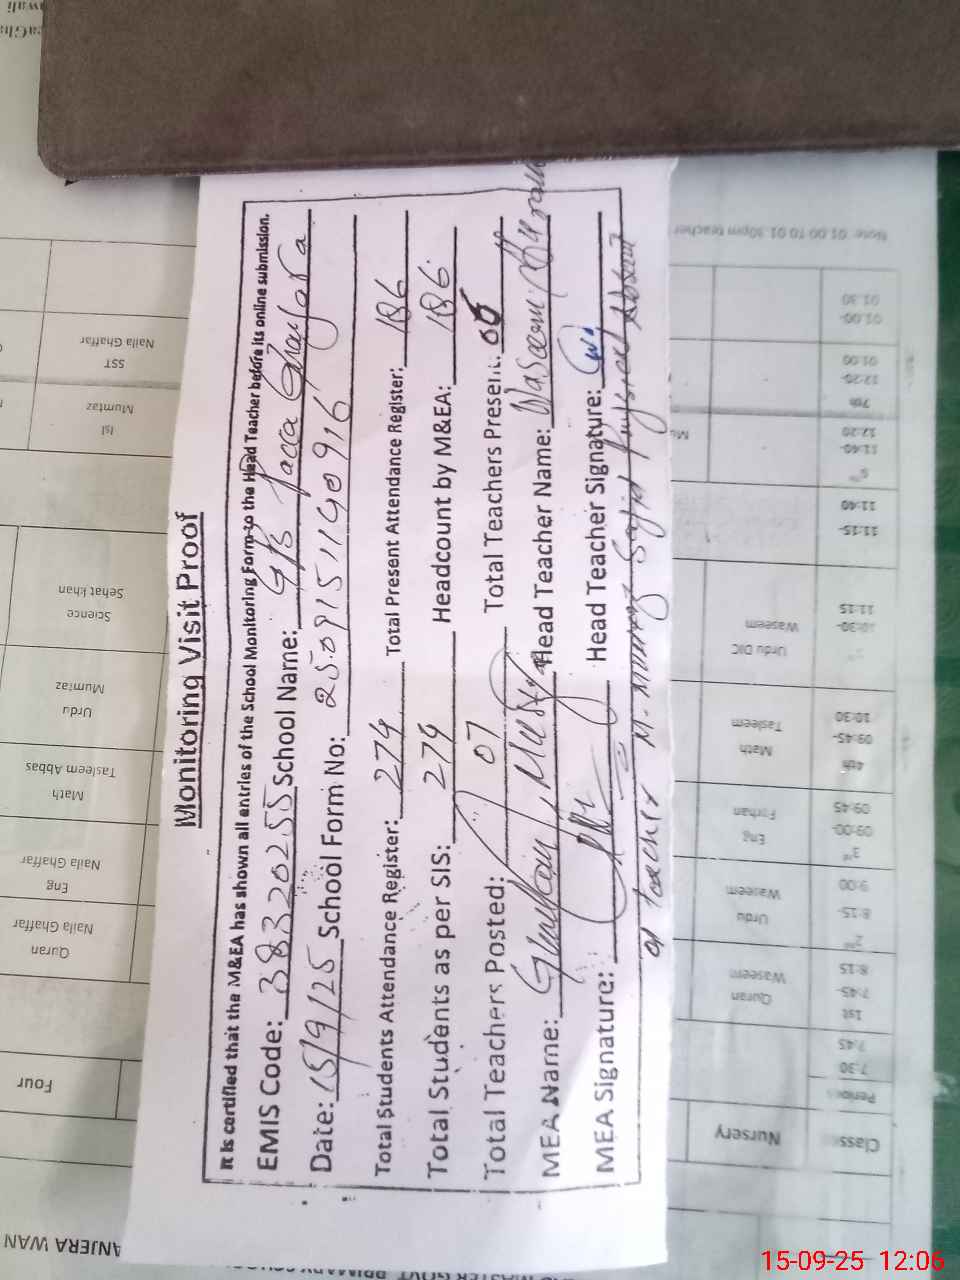 Monitoring Visit Proof
It is certified that the M&EA has shown all entries of the School Monitoring Form to the Head Teacher before its online submission.
EMIS Code: 38320255 School Name: GPS Pacca
Date: 15/9/25 School Form No: 250915114090916
Total Students Attendance Register: 274 Total Present Attendance Register: 186
Total Students as per SIS: 274 Headcount by M&EA: 186
Total Teachers Posted: 07 Total Teachers Present: 06
MEA Name: Head Teacher Name: Waseem
MEA Signature: Head Teacher Signature:
01 Teacher M. Mumtaz Sajid Physical Absent
Note: 01:00 TO 01:30pm teacher
Class Nursery Four
Periods
7:30
7:45
1st
7:45-
8:15
Quran
Waseem
Quran
Naila Ghaffar
2nd
8:15-
9:00
Urdu
Waseem
Eng
Naila Ghaffar
3rd
09:00-
09:45
Eng
Farhan
Math
Tasleem Abbas
4th
09:45-
10:30
Math
Tasleem
Urdu
Mumtaz
10:30-
11:15
Urdu DIC
Waseem
Science
Sehat khan
11:15-
11:40
6th
11:40-
12:20
Isl
Mumtaz
7th
12:20-
01:00
SST
Naila Ghaffar
01:00-
01:30
ANJERA WAN
15-09-25 12:06